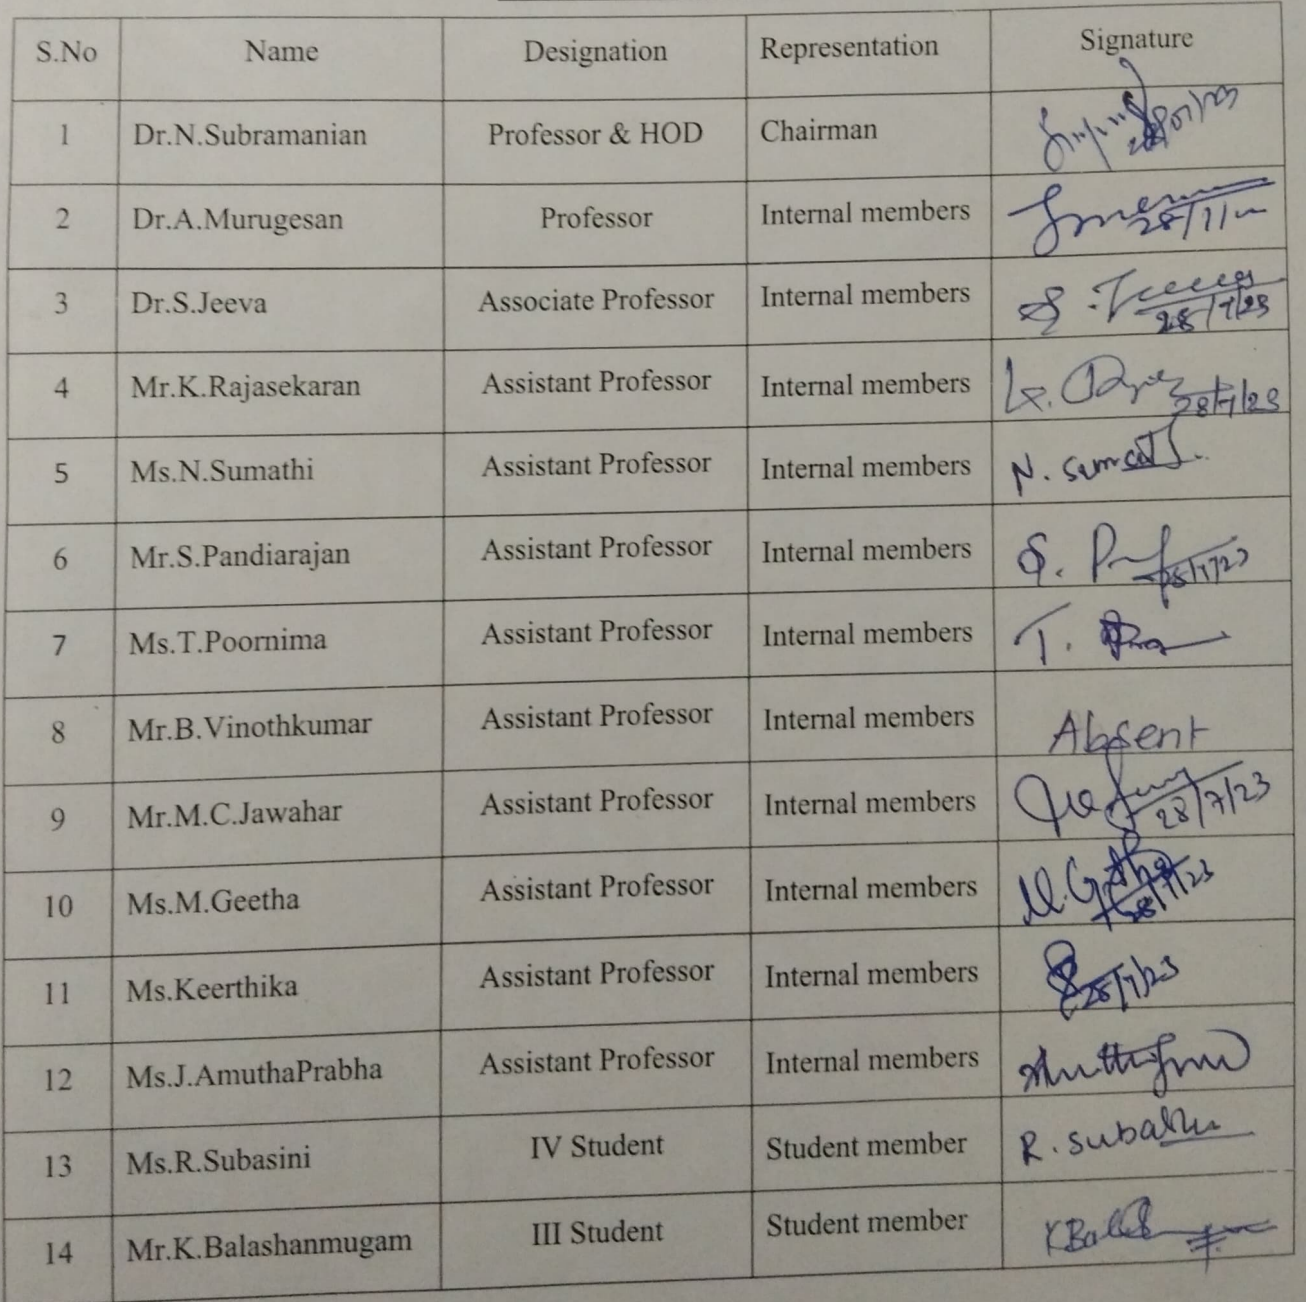 S.No Name Designation Representation Signature
1 Dr.N.Subramanian Professor & HOD Chairman
2 Dr.A.Murugesan Professor Internal members
3 Dr.S.Jeeva Associate Professor Internal members 28/7/23
4 Mr.K.Rajasekaran Assistant Professor Internal members 28/7/23
5 Ms.N.Sumathi Assistant Professor Internal members N.
6 Mr.S.Pandiarajan Assistant Professor Internal members S.
7 Ms.T.Poornima Assistant Professor Internal members T.
8 Mr.B.Vinothkumar Assistant Professor Internal members Absent
9 Mr.M.C.Jawahar Assistant Professor Internal members 28/7/23
10 Ms.M.Geetha Assistant Professor Internal members 28/7/23
11 Ms.Keerthika Assistant Professor Internal members 28/7/23
12 Ms.J.AmuthaPrabha Assistant Professor Internal members
13 Ms.R.Subasini IV Student Student member R.
14 Mr.K.Balashanmugam III Student Student member